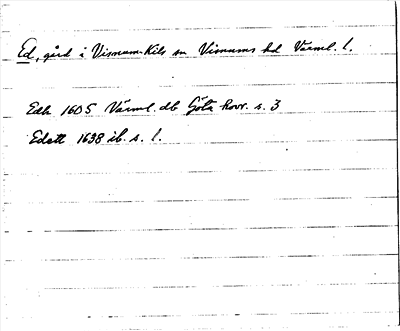 Ed, gård i Visnum-Kils sn Visnums hd Värml. l.
Edh 1605 Värml. db Göta hovr. s. 3
Edett 1638 ib. s. 1.